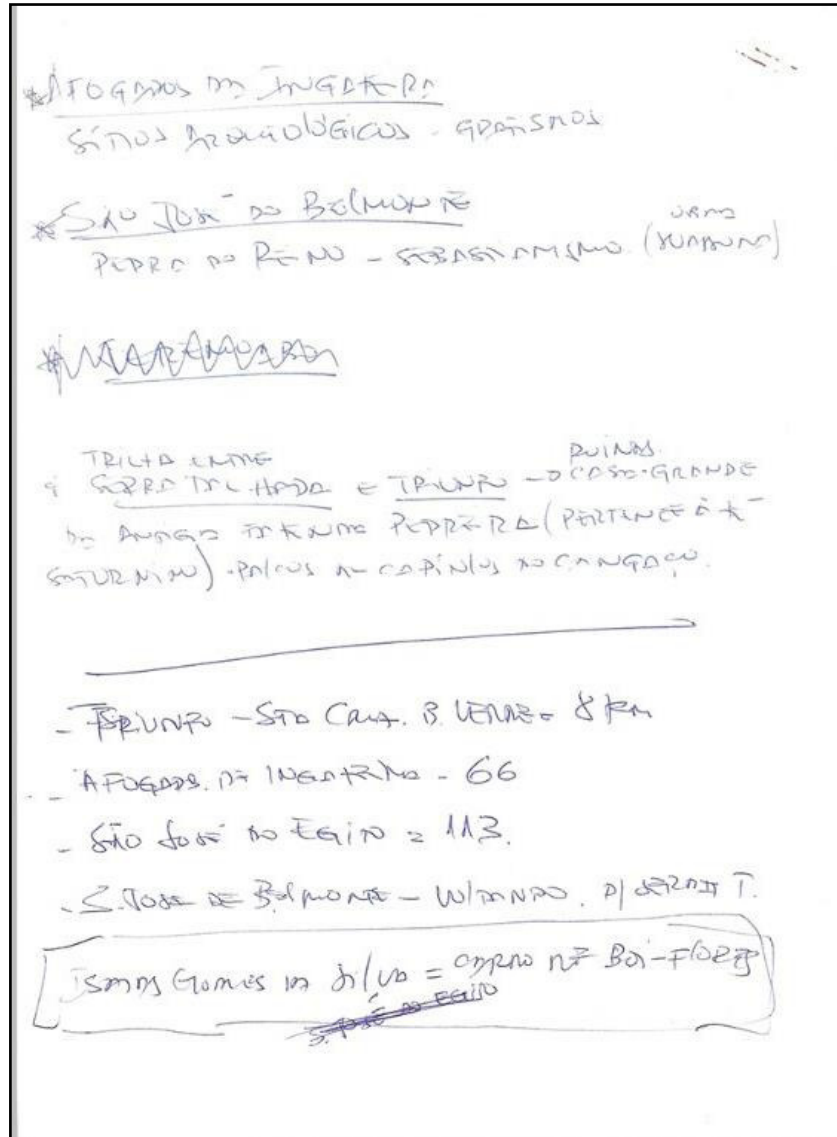 * AFOGADOS DA INGAZEIRA
SÍTIOS ARQUEOLÓGICOS - GRAFISMOS
* SÃO JOSÉ DO BELMONTE
PEDRA DO REINO - SEBASTIANISMO (
*
TRILHA ENTRE RUINAS
SERRA TALHADA E TRIUNFO - CASA-GRANDE
DA ANTIGA FAZENDA PEDREIRA (PERTENCE À
SATURNINO) - PALCOS DE CAPÍTULOS DO CANGAÇO.
- TRIUNFO - STA CRUZ. B. VERDE = 8 Km
- AFOGADOS. DA INGAZEIRA - 66
- SÃO JOSÉ DO EGITO = 113.
- S. JOSÉ DE BELMONTE - P/ SERRA T.
GOMES DA SILVA = CARRO DE BOI - FLORES
S. JOSÉ DO EGITO